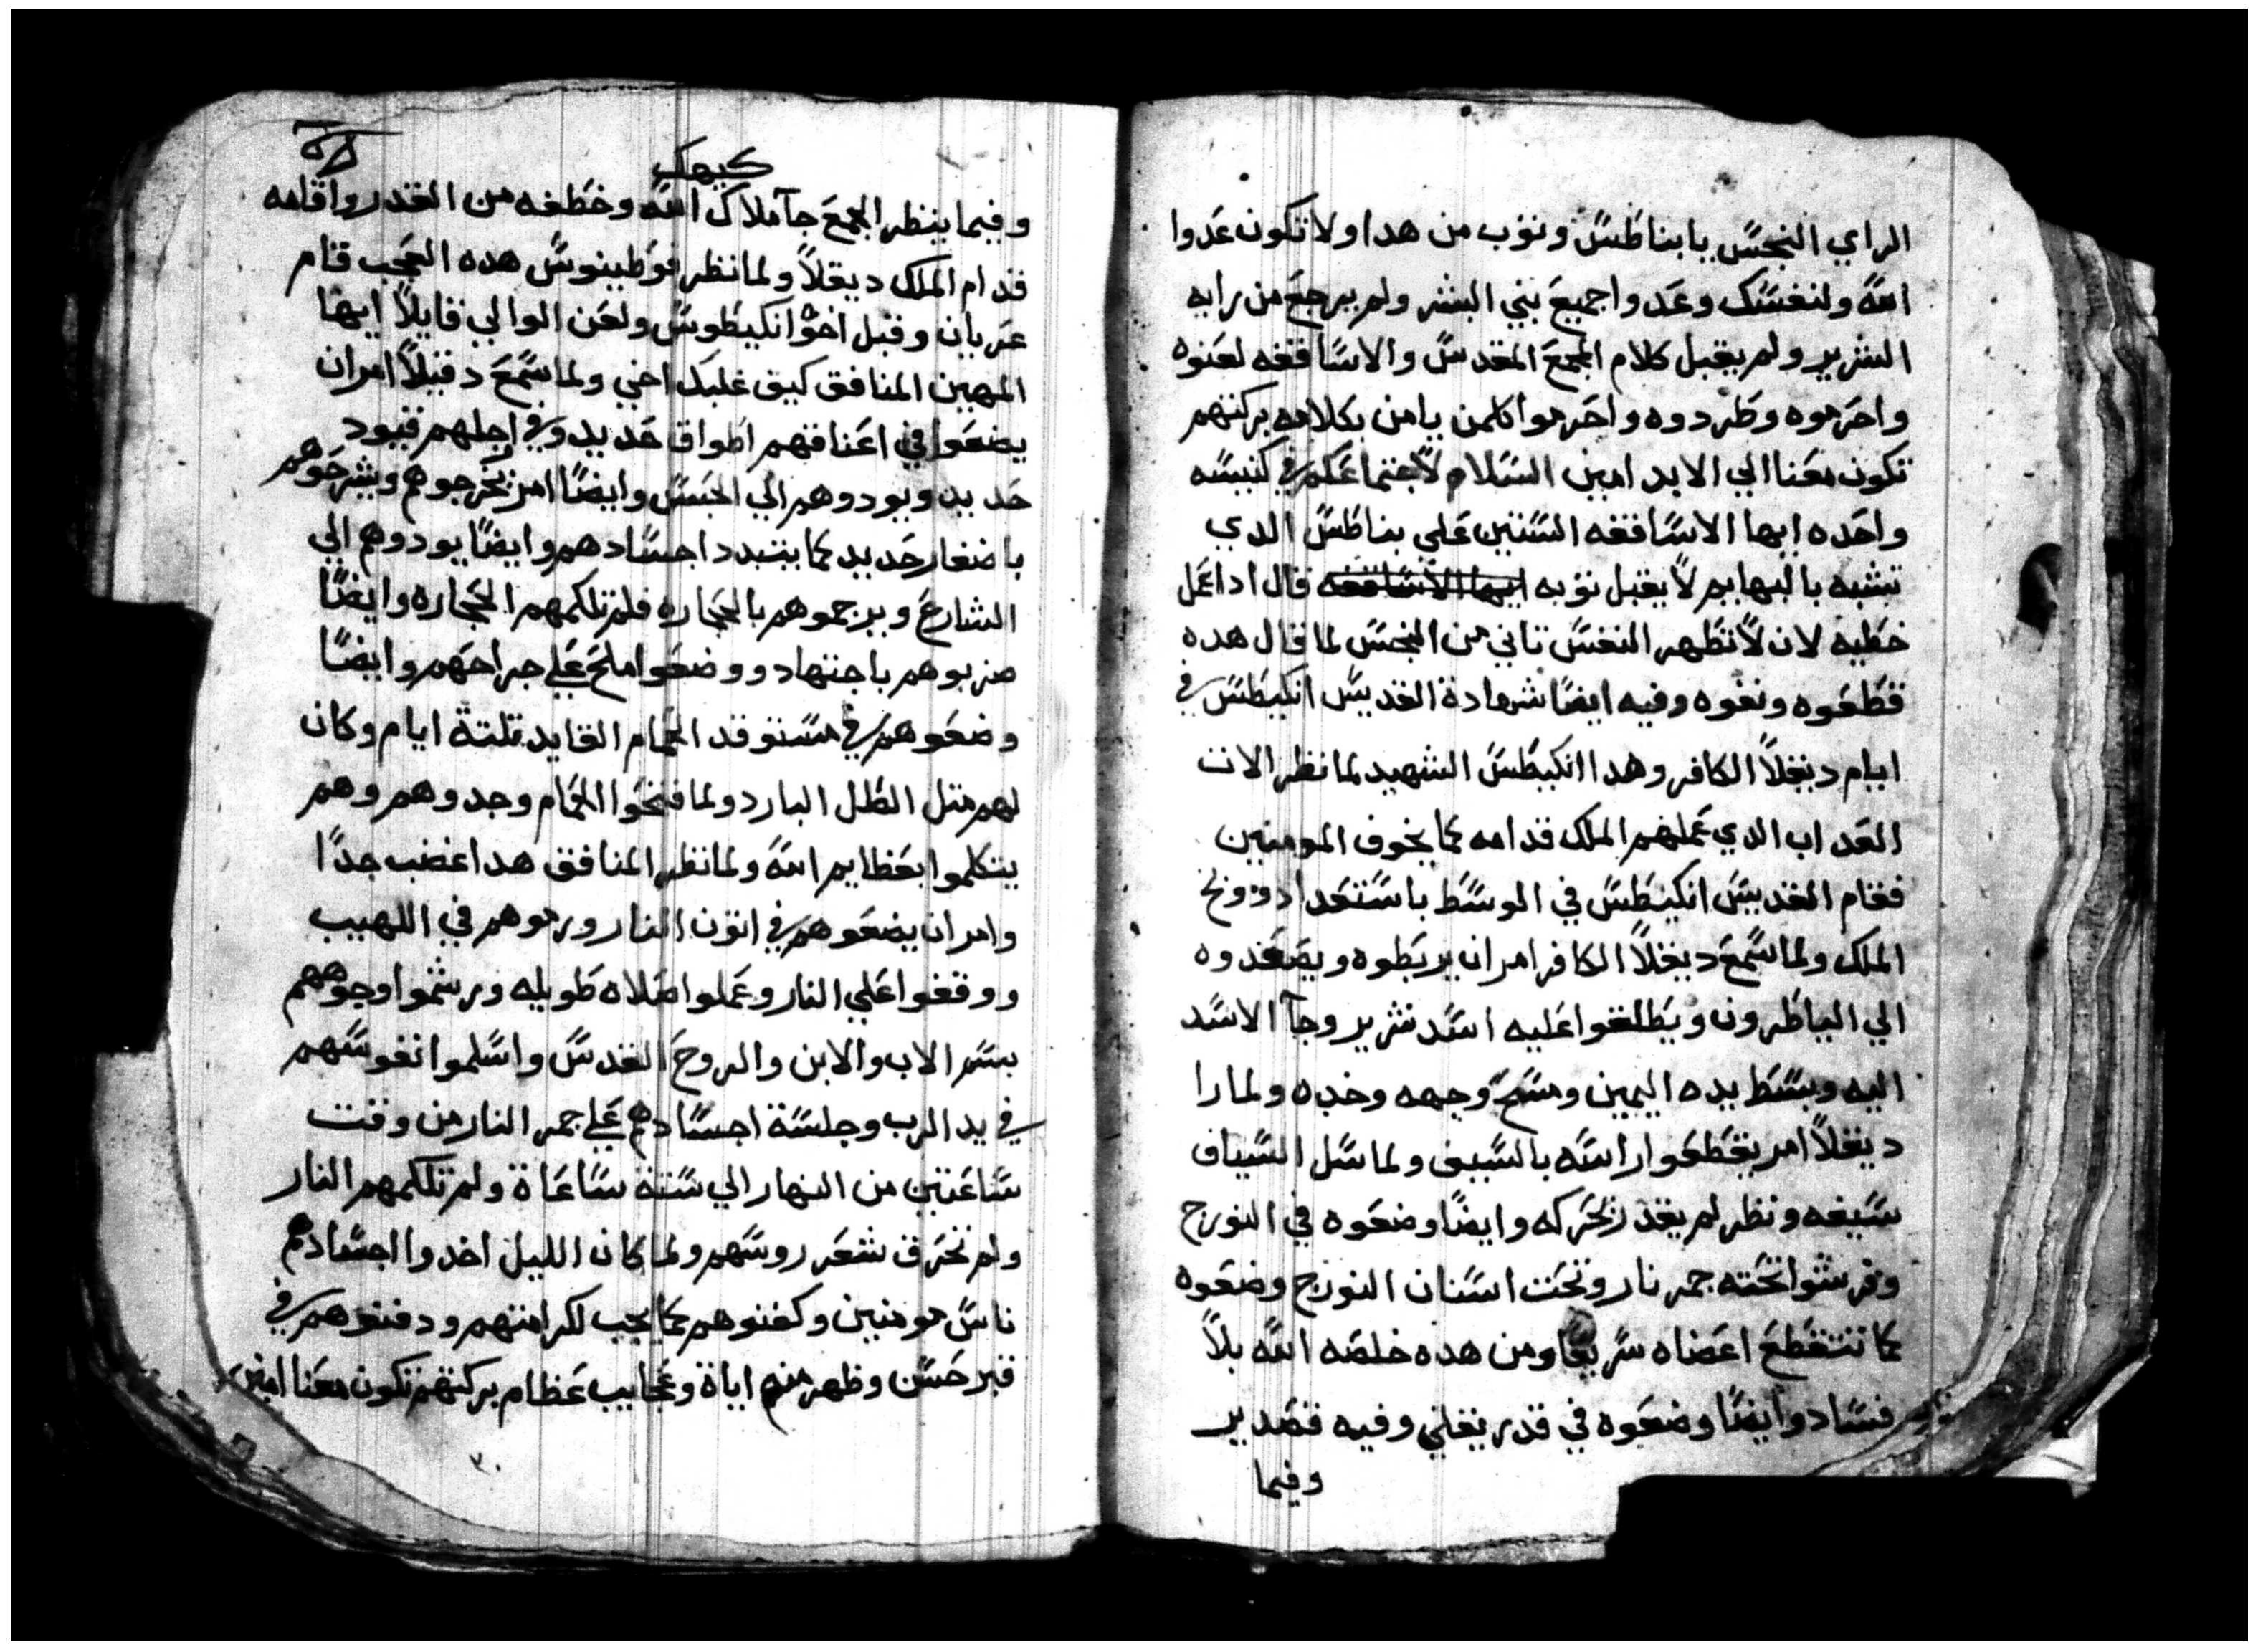 الراي النجس يا بناطس وتوب من هدا ولا تكون عدوا
الله ولنفسك وعدوا جميع بني البشر ولم يرجع من رايه
الشرير ولم يقبل كلام المجمع المقدس والاساقفه لعنوه
واحرموه وطردوه واحرموا كلمن يامن بكلامه بركتهم
تكون معنا الي الابد امين السلام لاجتماعكم في كنيسه
واحده ايها الاساقفه الستين علي بناطس الدي
تشبه بالبهايم لا يقبل توبه ايها الاساقفه قال ادا عمل
خطيه لان لا تطهر النفس تاني من النجس لما قال هده
قطعوه ونفوه وفيه ايضا شهادة القديس انكيطس في
ايام ديقلا الكافر وهدا انكيطس الشهيد لما نظر الات
العداب الدي عملهم الملك قدامه كما يخوف المومنين
فقام القديس انكيطس في الوسط باستعداد ووبخ
الملك ولما سمع ديقلا الكافر امر ان يربطوه ويصعدوه
الي التياطرون ويطلقوا عليه اسد شرير وجآ الاسد
اليه وبسط يده اليمين ومسح وجهه وخده ولما را
ديقلا امر يقطعوا راسه بالسيف ولما سل السياف
سيفه ونظر لم يقدر يحركه وايضا وضعوه في النورج
وفرشوا تحته جمر نار وتحت اسنان النورج وضعوه
كما تتقطع اعضاه سريعا ومن هده خلصه الله بلا
فساد وايضا وضعوه في قدر يغلي وفيه قصدير
وفيما
كيهك
وفيما ينظر الجمع جآ ملاك الله وخطفه من القدر واقامه
قدام الملك ديقلا ولما نظر فوطينوس هده العجب قام
عريان وقبل اخوا انكيطوس ولعن الوالي قايلا ايها
المهين المنافق كيق غلبك اخي ولما سمع دقيلا امر ان
يضعوا في اعناقهم اطواق حديد وفي اجلهم قيود
حديد ويودوهم الي الحبس وايضا امر يخرجوهم ويشرحوهم
باضفار حديد كما يتبدد اجسادهم وايضا يودوهم الي
الشارع ويرجموهم بالحجاره فلم تلكمهم الحجاره وايضا
ضربوهم باجتهاد ووضعوا ملح علي جراحهم وايضا
وضعوهم في مستوقد الحمام القايد تلتة ايام وكان
لهم متل الطل البارد ولما فتحوا الحمام وجدوهم وهم
يتكلموا بعظايم الله ولما نظر المنافق هدا غضب جدا
وامر ان يضعوهم في اتون النار ورموهم في اللهيب
ووقفوا علي النار وعملوا صلاه طويله ورشموا وجوههم
بسم الاب والابن والروح القدس واسلموا نفوسهم
في يد الرب وجلسة اجسادهم علي جمر النار من وقت
ساعتين من النهار الي ستة ساعاة ولم تلكمهم النار
ولم تحترق شعر روسهم ولما كان الليل اخدوا اجسادهم
ناس مومنين وكفنوهم كما يجب لكرامتهم ودفنوهم في
قبر حسن وظهر منهم اياة وعجايب عظام بركتهم تكون معنا امين